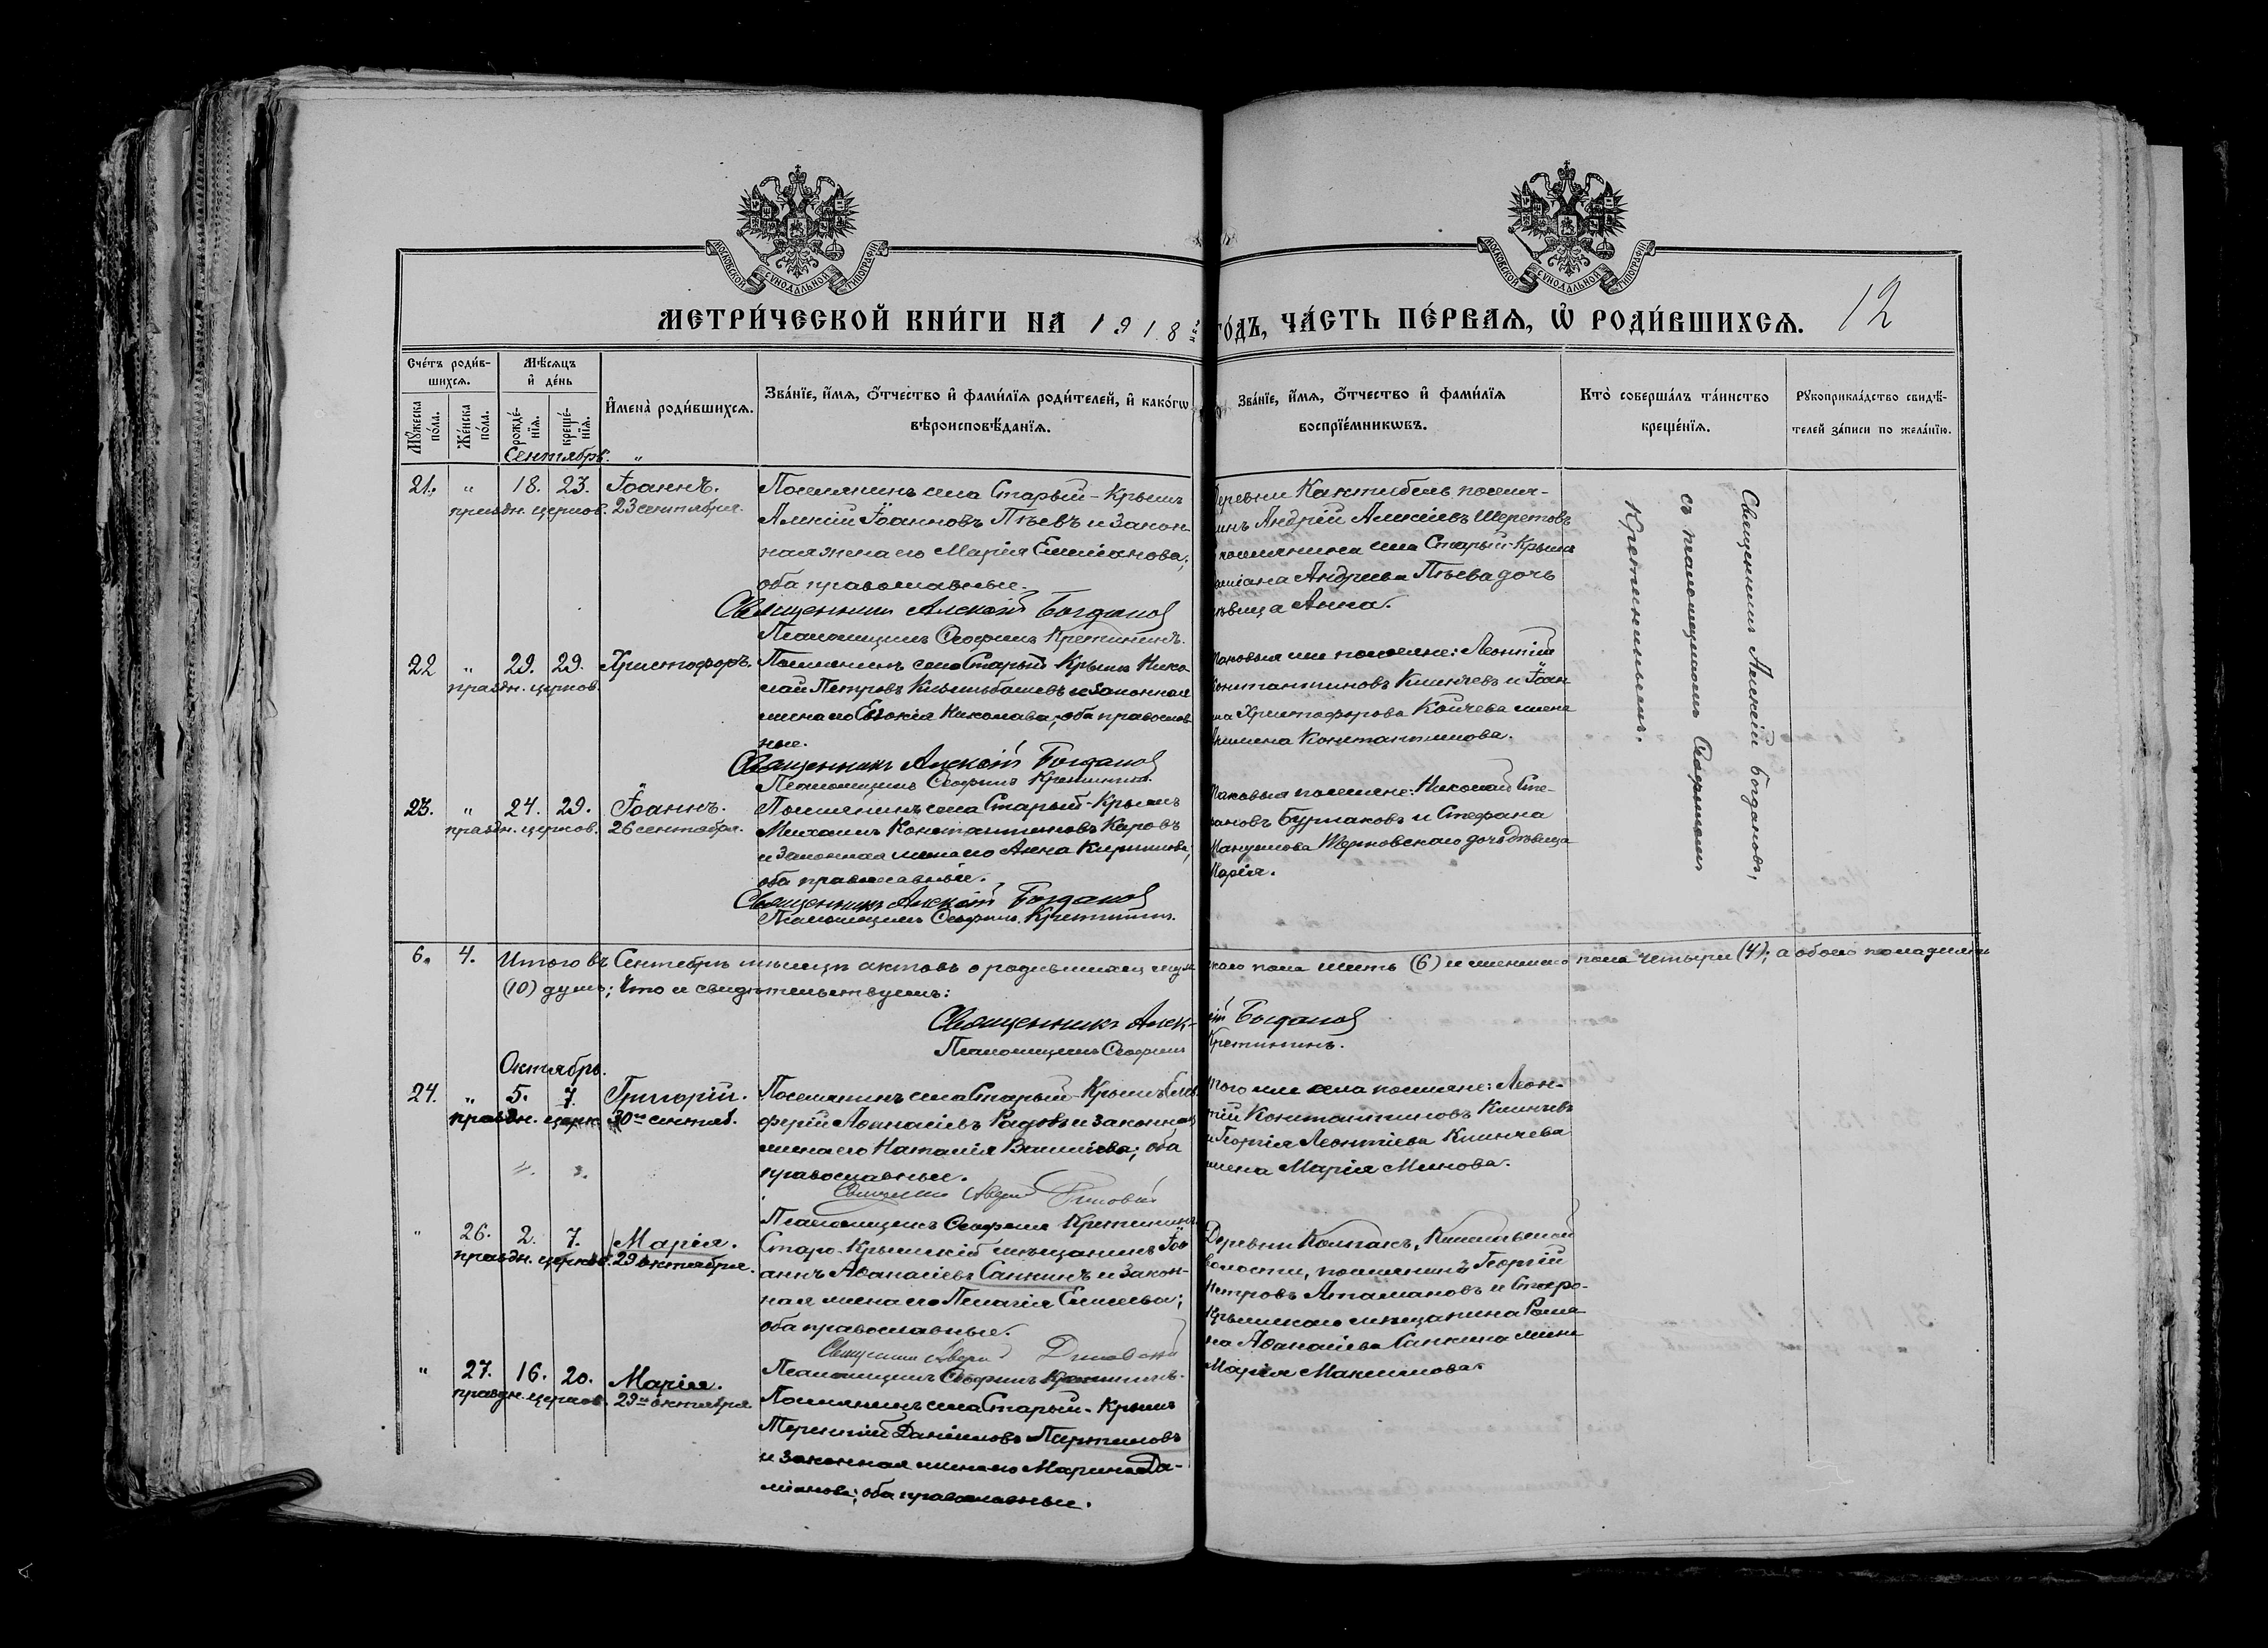 МОСКОВСКОЙ СѴНОДАЛЬНОЙ ТИПОГРАФІИ
МОСКОВСКОЙ СѴНОДАЛЬНОЙ ТИПОГРАФІИ
МЕТРИ́ЧЕСКОЙ КНИ́ГИ НА 1918 й
ГО́ДЪ, ЧА́СТЬ ПЕ́РВАѦ, Ѡ҆ РОДИ́ВШИХСѦ. 12
Сче́тъ роди́в-
шихсѧ.
Мꙋ́жеска по́ла.
Же́нска по́ла.
Мѣ́сѧцъ
и҆ де́нь
рожде́-нїѧ.
креще́-нїѧ.
И҆мена̀ роди́вшихсѧ.
Зва́нїе, и҆́мѧ, ѻ҆́тчество и҆ фами́лїѧ роди́телей, и҆ како́гѡ
вѣроисповѣ́данїѧ.
Зва́нїе, и҆́мѧ, ѻ҆́тчество и҆ фами́лїѧ
воспрїе́мникѡвъ.
Кто̀ соверша́лъ та́инство
креще́нїѧ.
Рꙋкоприкла́дство свидѣ́-
телей за́писи по жела́нїю.
Сентябрь. "
21. " 18. 23. Іоаннъ.
праздн. церков. 23 сентября.
Поселянинъ села Старый-Крымъ
Алексій Іоанновъ Пѣевъ и закон-
ная жена его Марія Емиліанова;
оба православные.
Священникъ Алексій Богданов
Псаломщикъ Ѳеофилъ Кретининъ.
Деревни посел-
инъ Андрей Алексіевъ Шеретовъ
поселянина села Старый-Крымъ
Андреева Пѣева дочь
ѣвица Анна.
Священникъ Алексій Богдановъ,
съ псаломщикомъ Ѳеофиломъ
Кретининымъ.
22 " 29. 29. Христофоръ.
праздн. церков.
Поселянинъ села Старый Крымъ Нико-
лай Петровъ Кизильбашевъ и законная
жена его Евдокія Николаева; оба православ-
ные.
Священникъ Алексій Богданов
Псаломщикъ Ѳеофилъ Кретининъ.
таковыя же поселяне: Леонтій
Константиновъ Клинчевъ и Іоан
на Христофорова Койчева жена
Константинова.
23. " 24. 29. Іоаннъ.
праздн. церков. 26 сентября.
Поселянинъ села Старый-Крымъ
Михаилъ Константиновъ Каровъ
и законная жена его Анна Кириллова;
оба православные.
Священникъ Алексій Богданов
Псаломщикъ Ѳеофилъ Кретининъ.
Таковыя поселяне: Николай Сте-
фановъ Бурлаковъ и Стефана
Мануилова Терновскаго дочь дѣвица
Марія.
6. 4. Итого въ Сентябрѣ мѣсяцѣ актовъ о родившихся муж
скаго пола шесть (6) и женскаго пола четыри (4); а обоего пола десять
(10) душъ; что и свидѣтельствуемъ:
Священникъ Алек-
сій Богданов
Псаломщикъ Ѳеофилъ
Кретининъ.
Октябрь.
24. " 5. 7. Григорій.
праздн. церк. 30го сентяб.
Поселянинъ села Старый-Крымъ Елев
ферій Аѳанасіевъ Радовъ и законная
жена его Наталія Василіева; оба
православные.
Священникъ
Псаломщикъ Ѳеофилъ Кретининъ
того же села поселяне: Леон-
тій Константиновъ Клинчевъ
и Георгія Леонтіева Клинчева
жена Марія Минова.
" 26. 2. 7. Марія.
праздн. церков. 29 октября.
Старо-Крымскій мѣщанинъ Іо-
аннъ Аѳанасіевъ Сапкинъ и закон-
ная жена его Пелагія Елисеева;
оба православные.
Священникъ
Псаломщикъ Ѳеофилъ Кретининъ.
Деревни
волости, поселянинъ Георгій
Петровъ Атамановъ и Старо-
Крымскаго мѣщанина Рома
на Аѳанасіева Сапкина жена
Марія Максимова.
" 27. 16. 20. Марія.
праздн. церков. 29го октября
Поселянинъ села Старый-Крымъ
Терентій Даніиловъ Партиновъ
и законная жена его Марина Да-
міанова; оба православные.